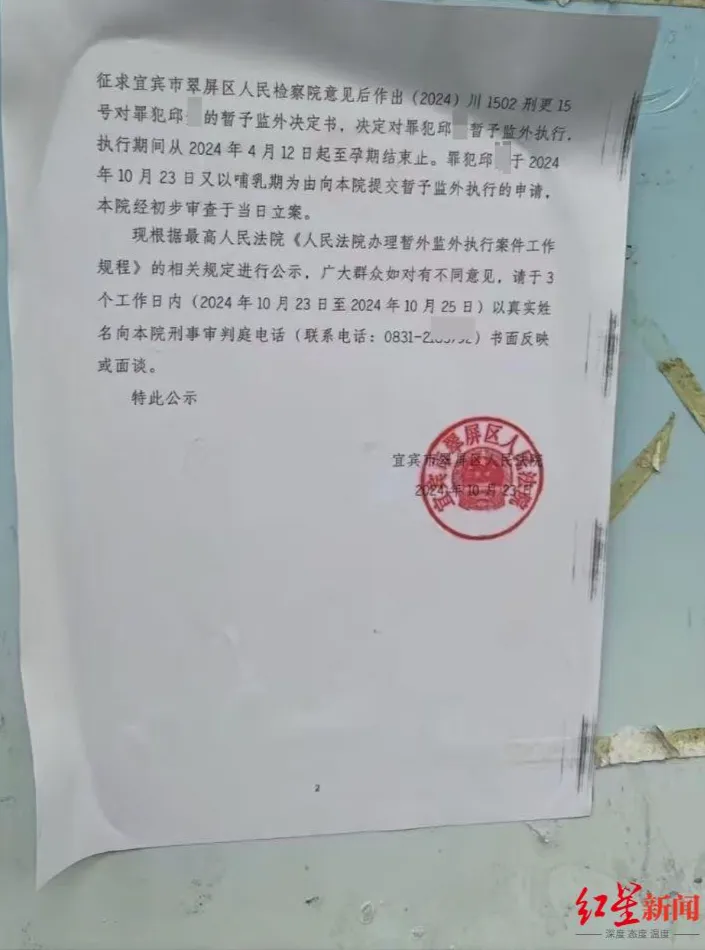 征求宜宾市翠屏区人民检察院意见后作出（2024）川1502刑更15
号对罪犯邱 的暂予监外决定书，决定对罪犯邱 暂予监外执行，
执行期间从2024年4月12日起至孕期结束止。罪犯邱 于2024
年10月23日又以哺乳期为由向本院提交暂予监外执行的申请，
本院经初步审查于当日立案。
现根据最高人民法院《人民法院办理暂外监外执行案件工作
规程》的相关规定进行公示，广大群众如对有不同意见，请于3
个工作日内（2024年10月23日至2024年10月25日）以真实姓
名向本院刑事审判庭电话（联系电话：0831-2 ）书面反映
或面谈。
特此公示
宜宾市翠屏区人民法院
2024年10月23日
宜宾市翠屏区人民法院
2
红星新闻
深度 态度 温度